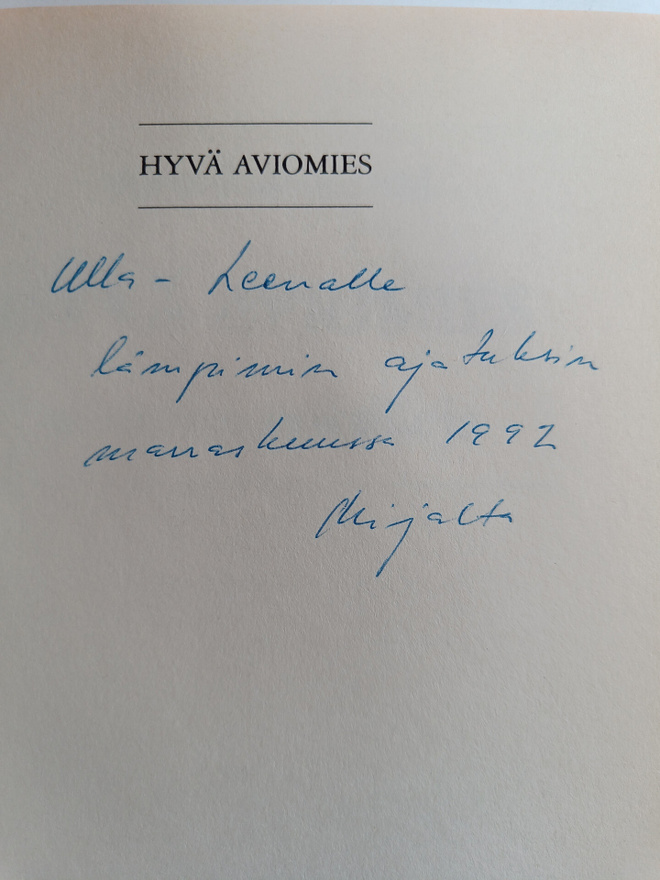 HYVÄ AVIOMIES
Ulla - Leenalle
lämpimin ajatuksin
marraskuussa 1992
Mirjalta